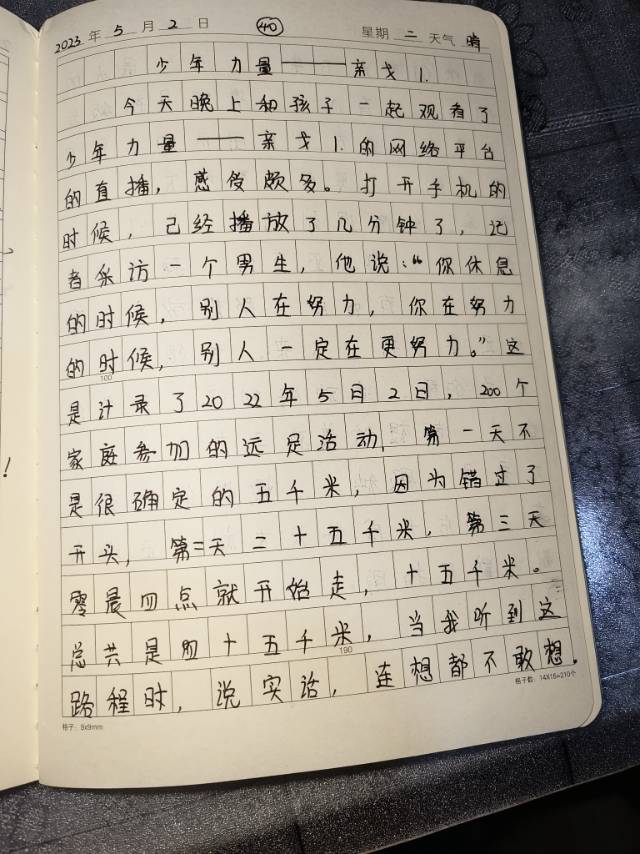 2023 年 5 月 2 日 40 星期 二 天气 晴
少年力量——亲戈1.
今天晚上和孩子一起观看了
少年力量——亲戈1.的网络平台
的直播，感受颇多。打开手机的
时候，已经播放了几分钟了，记
者采访一个男生，他说：“你休息
的时候，别人在努力，你在努力
的时候，别人一定在更努力。”这
100
是计录了2022年5月2日，200个
家庭参加的远足活动，第一天不
是很确定的五千米，因为错过了
开头，第二天二十五千米，第三天
零晨四点就开始走，十五千米。
总共是四十五千米，当我听到这
190
路程时，说实话，连想都不敢想.
格子：9x9mm
格子数：14X15=210个
！